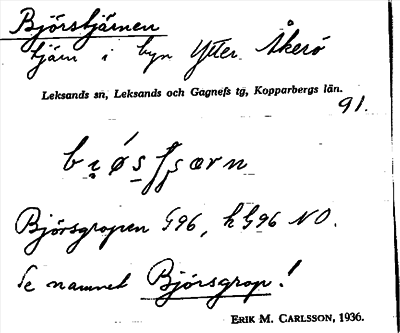 Björstjärnen
tjärn i byn Ytter Åkerö
Leksands sn, Leksands och Gagnefs tg, Kopparbergs län.
91.
Björsgropen 596, h G96 NO.
Se namnet Björsgrop!
ERIK M. CARLSSON, 1936.